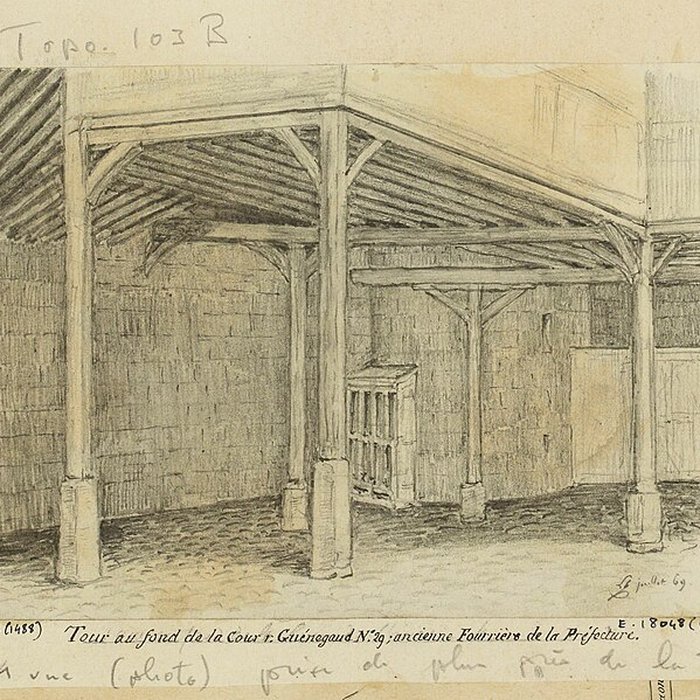 Topo. 103 B
juillet 69
(1488)
E. 18048 (
Tour au fond de la Cour r. Guénégaud N° 29; ancienne Fourrière de la Préfecture.
vue (photo) prise de plus près de la